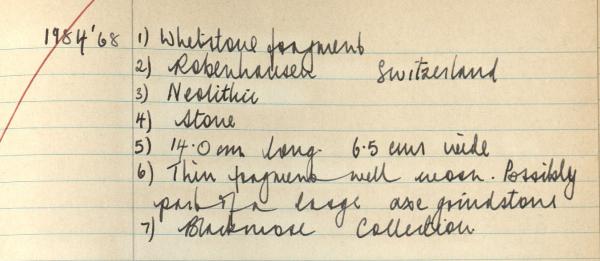 1984'68 1) Whetstone fragment
2) Robenhausen Switzerland
3) Neolithic
4) Stone
5) 14.0 cm long. 6.5 cms wide
6) Thin fragment well worn. Possibly
part of a large axe grindstone
7) Blackmore Collection